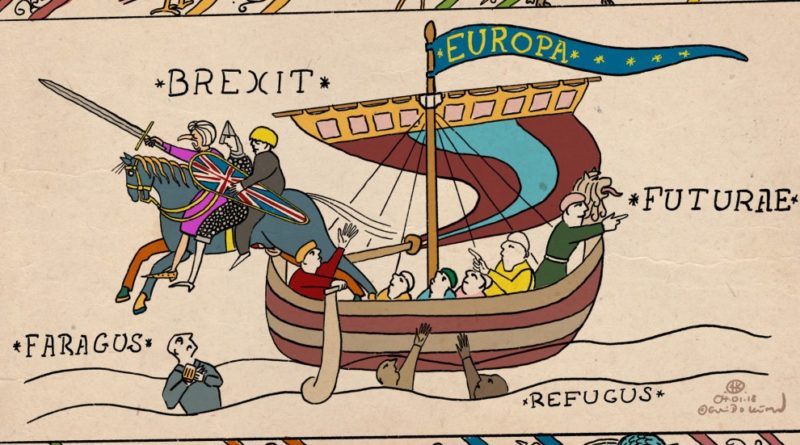 *EUROPA*
*BREXIT*
*FUTURAE*
*FARAGUS*
*REFUGUS*
04.01.18